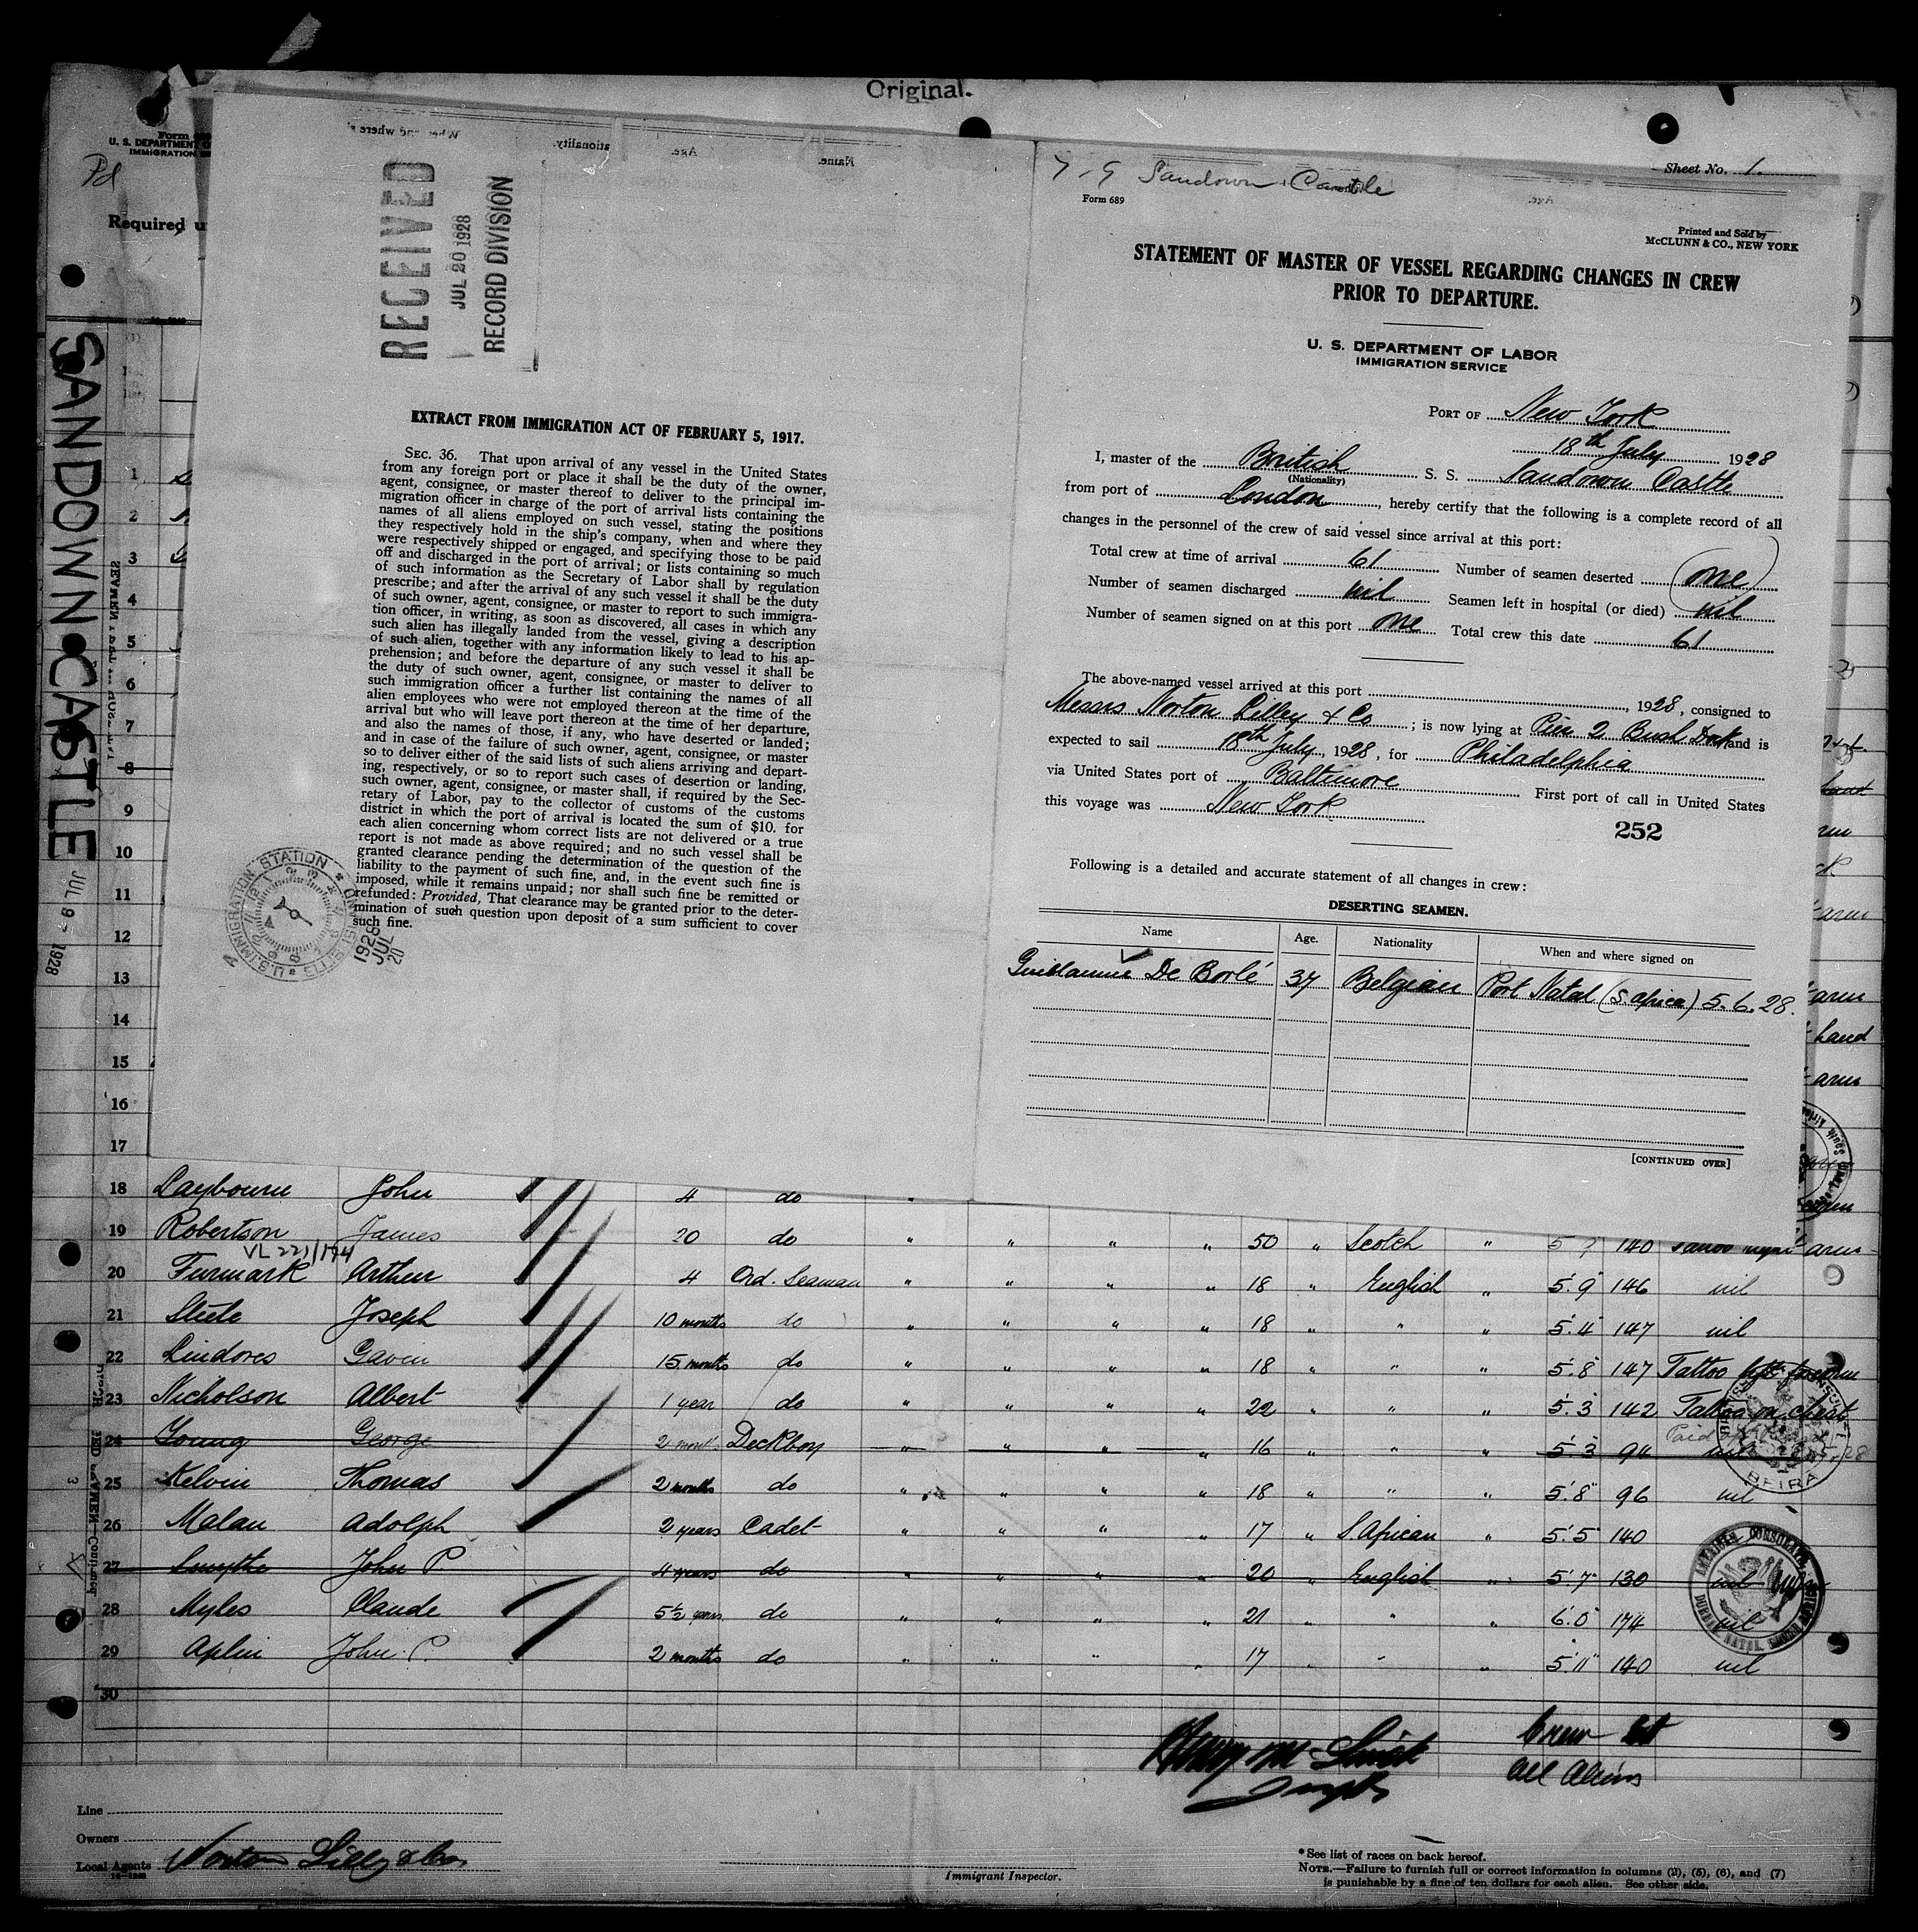 Original.
Form 689
U. S. DEPARTMENT O
IMMIGRATION
Pd
Required u
Sheet No. 1.
SANDOWN CASTLE
JUL 9 - 1928
RECEIVED
JUL 20 1928
RECORD DIVISION
EXTRACT FROM IMMIGRATION ACT OF FEBRUARY 5, 1917.
SEC. 36. That upon arrival of any vessel in the United States
from any foreign port or place it shall be the duty of the owner,
agent, consignee, or master thereof to deliver to the principal im-
migration officer in charge of the port of arrival lists containing the
names of all aliens employed on such vessel, stating the positions
they respectively hold in the ship's company, when and where they
were respectively shipped or engaged, and specifying those to be paid
off and discharged in the port of arrival; or lists containing so much
of such information as the Secretary of Labor shall by regulation
prescribe; and after the arrival of any such vessel it shall be the duty
of such owner, agent, consignee, or master to report to such immigra-
tion officer, in writing, as soon as discovered, all cases in which any
such alien has illegally landed from the vessel, giving a description
of such alien, together with any information likely to lead to his ap-
prehension; and before the departure of any such vessel it shall be
the duty of such owner, agent, consignee, or master to deliver to
such immigration officer a further list containing the names of all
alien employees who were not employed thereon at the time of the
arrival but who will leave port thereon at the time of her departure,
and also the names of those, if any, who have deserted or landed;
and in case of the failure of such owner, agent, consignee, or master
so to deliver either of the said lists of such aliens arriving and depart-
ing, respectively, or so to report such cases of desertion or landing,
such owner, agent, consignee, or master shall, if required by the Sec-
retary of Labor, pay to the collector of customs of the customs
district in which the port of arrival is located the sum of $10. for
each alien concerning whom correct lists are not delivered or a true
report is not made as above required; and no such vessel shall be
granted clearance pending the determination of the question of the
liability to the payment of such fine, and, in the event such fine is
imposed, while it remains unpaid; nor shall such fine be remitted or
refunded: Provided, That clearance may be granted prior to the deter-
mination of such question upon deposit of a sum sufficient to cover
such fine.
IMMIGRATION STATION
ELLIS ISLAND
U.S.
1928
JUL
20
Sandown Castle
Form 689
Printed and Sold by
McCLUNN & CO., NEW YORK
STATEMENT OF MASTER OF VESSEL REGARDING CHANGES IN CREW
PRIOR TO DEPARTURE.
U. S. DEPARTMENT OF LABOR
IMMIGRATION SERVICE
PORT OF New York
18th July 1928
I, master of the British S. S. Sandown Castle
(Nationality)
from port of London, hereby certify that the following is a complete record of all
changes in the personnel of the crew of said vessel since arrival at this port:
Total crew at time of arrival 61 Number of seamen deserted one
Number of seamen discharged nil Seamen left in hospital (or died) nil
Number of seamen signed on at this port one Total crew this date 61
The above-named vessel arrived at this port , 1928, consigned to
Messrs Norton Lilley & Co ; is now lying at Pier 2 Bush Dock and is
expected to sail 18th July, 1928, for Philadelphia
via United States port of Baltimore First port of call in United States
this voyage was New York
252
Following is a detailed and accurate statement of all changes in crew:
DESERTING SEAMEN.
Name Age. Nationality When and where signed on
Guillaume De Borlé 37 Belgian Port Natal (S. africa) 5.6.28.
[CONTINUED OVER]
1
2
3
4
5
6
7
8
9
10
11
12
13
14
15
16
17
18 Laybourn John 4 do "
19 Robertson James 20 do " " " " 50 " Scotch " 140 arm
VL 221/194
20 Furmark Arthur 4 Ord. Seaman " " " " 18 " English " 5'.9" 146 nil
21 Steele Joseph 10 months do " " " " 18 " " " 5'.4" 147 nil
22 Lindores Gavin 15 months do " " " " 18 " " " 5'.8" 147 Tattoo left forearm
23 Nicholson Albert 1 year do " " " " 22 " " " 5'.3 142 Tattoo on chest
24 Young George 2 months Deckboy " " " " 16 " " " 5'.3 94 nil
25 Kelvin Thomas 2 months do " " " " 18 " " " 5'.8" 96 nil
26 Malan Adolph 2 years Cadet " " " " 17 " S. African " 5'.5" 140
27 Smythe John P. 4 years do " " " " 20 " English " 5'.7" 130 nil
28 Myles Claude 5½ years do " " " " 21 " " " 6'.0" 174 nil
29 Aplin John P. 2 months do " " " " 17 " " " 5'.11" 140 nil
30
BEIRA
AMERICAN CONSULATE
DURBAN, NATAL
Crew 61
All Aliens
Line
Owners
Local Agents Norton Lilly & Co.
Immigrant Inspector.
* See list of races on back hereof.
NOTE.—Failure to furnish full or correct information in columns (2), (5), (6), and (7)
is punishable by a fine of ten dollars for each alien. See other side.